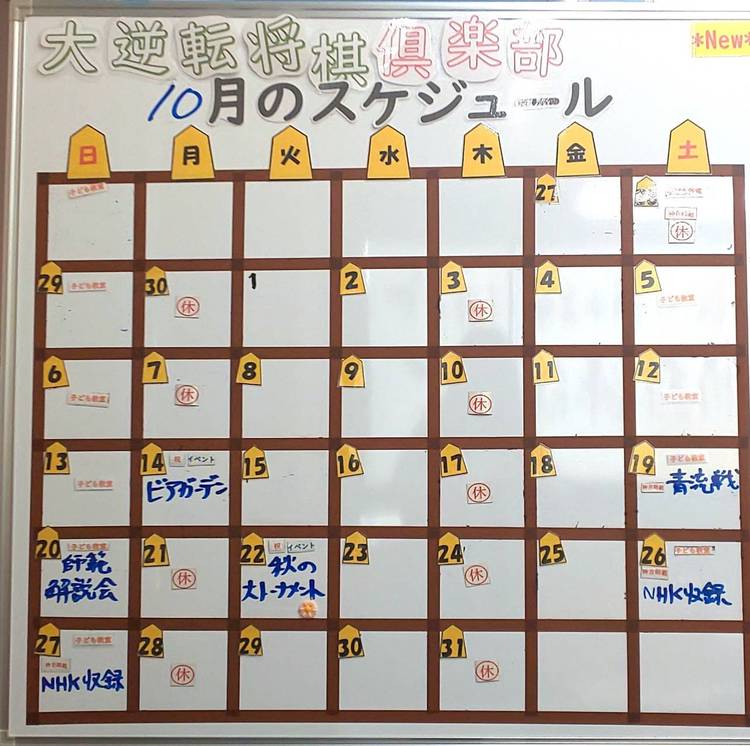 大逆転将棋倶楽部
*New*
10月のスケジュール
日 月 火 水 木 金 土
子ども教室
27
休
29 子ども教室
30 休
1
2
3 休
4
5 子ども教室
6 子ども教室
7 休
8
9
10 休
11
12 子ども教室
13 子ども教室
14 祝 イベント
ビアガーデン
15
16
17 休
18
19 子ども教室
青流戦
20 子ども教室
師範
解説会
21 休
22 祝 イベント
秋の
大トーナメント
23
24 休
25
26 子ども教室
NHK収録
27 子ども教室
NHK収録
28 休
29
30
31 休